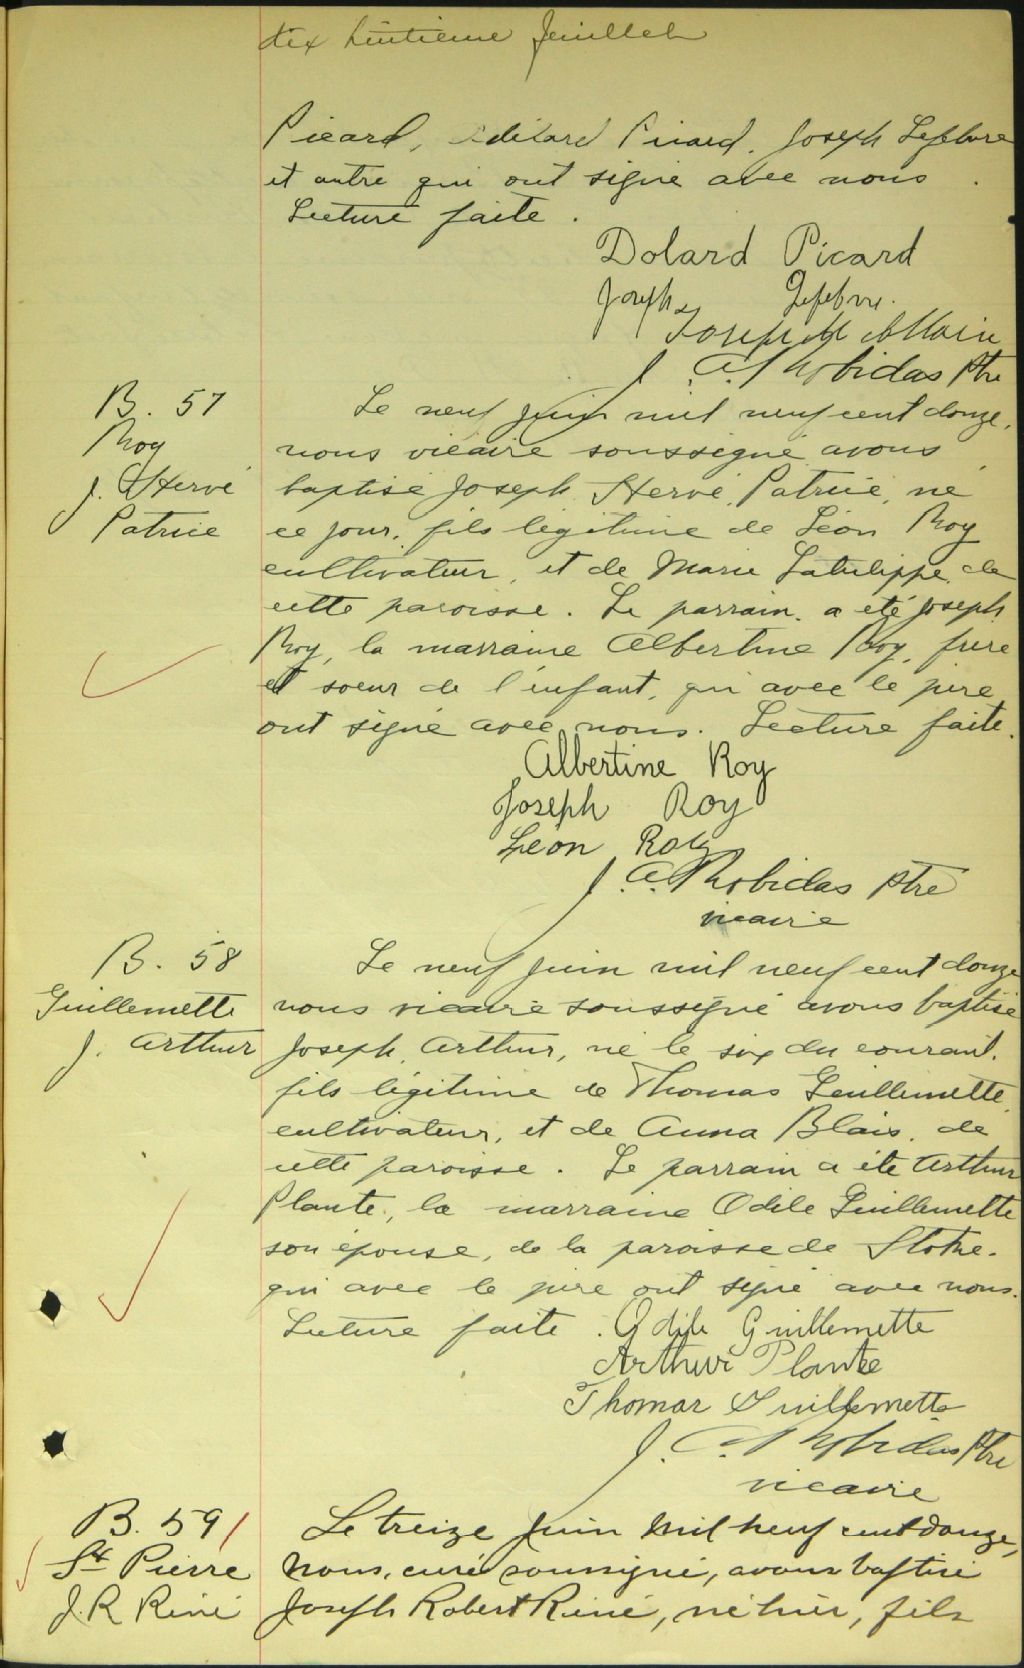 dix huitieme feuillet
Picard, Adélard Picard, Joseph Lefebvre
et autre qui ont signé avec nous.
Lecture faite.
Dolard Picard
Joseph Lefebvre.
Joseph M Allaire
J. A. Robidas Ptre
B. 57
Roy
J. Hervé
Patrice
Le neuf juin mil neuf cent douze,
nous vicaire soussigné avons
baptisé Joseph Hervé Patrice, né
ce jour, fils légitime de Léon Roy
cultivateur, et de Marie Latulippe, de
cette paroisse. Le parrain a été Joseph
Roy, la marraine Albertine Roy, frère
et soeur de l'enfant, qui avec le père
ont signé avec nous. Lecture faite.
Albertine Roy
Joseph Roy
Léon Roy
J. A. Robidas Ptre
vicaire
B. 58
Guillemette
J. Arthur
Le neuf juin mil neuf cent douze
nous vicaire soussigné avons baptisé
Joseph, Arthur, né le six du courant,
fils légitime de Thomas Guillemette,
cultivateur, et de Anna Blais, de
cette paroisse. Le parrain a été Arthur
Plante, la marraine Odile Guillemette
son épouse, de la paroisse de
qui avec le père ont signé avec nous.
Lecture faite. Odile Guillemette
Arthur Plante
Thomas Guillemette
J. A. Robidas Ptre
vicaire
B. 59
St Pierre
J. R René
Le treize Juin mil neuf cent douze,
nous, curé soussigné, avons baptisé
Joseph Robert René, né hier, fils